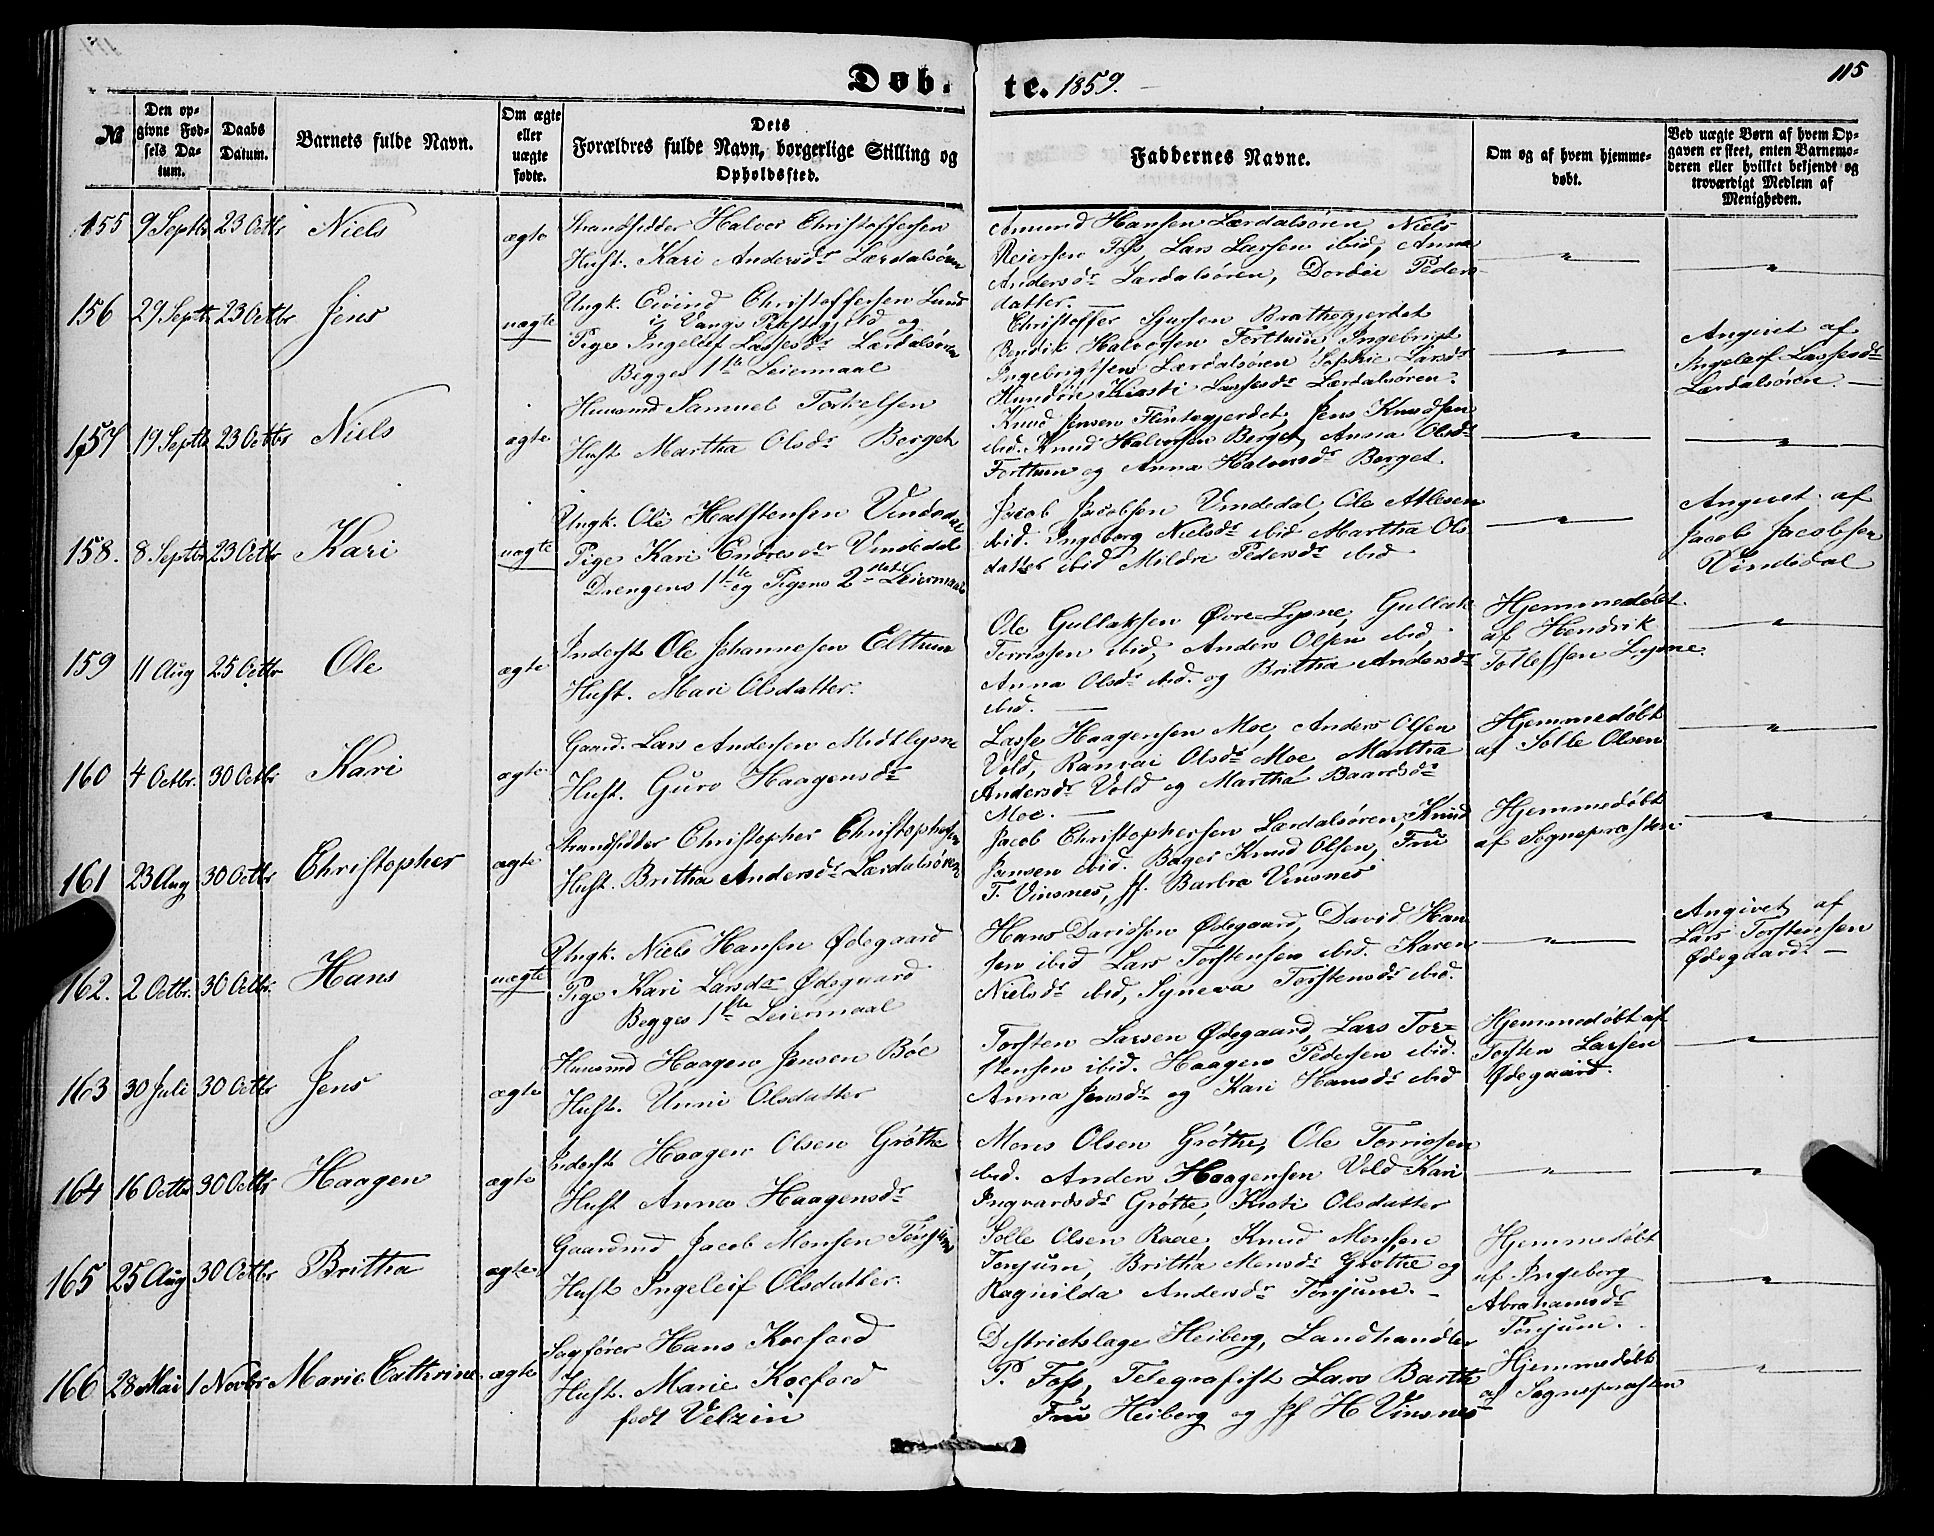 115
Døb. te. 1859.
№ | Den op-givne Fød-sels Da-tum. | Daabs Datum. | Barnets fulde Navn. | Om ægte eller uægte fødte. | Dets Forældres fulde Navn, borgerlige Stilling og Opholdssted. | Faddernes Navne. | Om og af hvem hjemme-døbt. | Ved uægte Børn af hvem Op-gaven er skeet, enten Barnemo-deren eller hvilket bekjendt og troværdigt Medlem af Menigheden.
155 9 Septbr 23 Octbr Niels ægte
Strandsidder Halvor Christoffersen
Hust. Kari Andersdr Lærdalsøren
Amund Hansen Lærdalsøren, Niels
Reiersen Føs, Lars Larsen ibid, Anna
Andersdr Lærdalsøren, Dordei Peders-
datter.
156 29 Septbr 23 Octbr Jens uægte
Ungk. Eivind Christoffersen Lund
i Vangs Præstegjeld og
Pige Ingeleif Lassesdr Lærdalsøren
Begges 1ste Leiermaal
Christoffer Sjursen Brathegjerdet
Bendik Halvorsen Forthun, Ingebrigt
Ingebrigtsen Lærdalsøren Sophie Larsdr
Hundri Kirsti Lassesdr Lærdalsøren.
Angivet af
Ingeleif Lassesdr
Lærdalsøren. —
157 19 Septbr 23 Octbr Niels ægte
Huusmd Samuel Torkelsen
Hust. Martha Olsdr Berget
Knud Jensen Flintegjerdet, Jens Knudsen
ibid. Knud Halvorsen Berget, Anna Olsdr
Forthun og Anna Halvorsdr Berget.
158. 8 Septbr 23 Octbr Kari uægte
Ungk. Ole Halstensen Vindedal
Pige Kari Endresdr Vindedal
Drengens 1ste og Pigens 2det Leiermaal
Jacob Jacobsen Vindedal, Ole Atlesen
ibid. Ingeborg Nielsdr ibid Martha Ols
datter ibid Mildri Pedersdr ibid
Angivet af
Jacob Jacobsen
Vindedal
159 11 Aug 25 Octbr Ole ægte
Inderst Ole Johannesen Elthun
Hust. Mari Olsdatter.
Ole Gullaksen Øvre Lysne, Gullak
Torrissen ibid, Anders Olsen ibid,
Anna Olsdr ibid. og Britha Andersdr
ibid. —
Hjemmedøbt
af Hendrik
Tollefsen Lysne
160 4 Octbr. 30 Octbr Kari ægte
Gaard. Lars Andersen Midtlysne
Hust. Guro Haagensdr
Lasse Haagensen Moe, Anders Olsen
Vold, Ranvei Olsdr Moe, Martha
Andersdr Vold og Martha Baardsdr
Moe. —
Hjemmedøbt
af Solle Olsen
161 23 Aug 30 Octbr Christopher ægte
Strandsidder Christopher Christophersen
Hust. Britha Andersdr Lærdalsøren
Jacob Christophersen Lærdalsøren, Knud
Jansen ibid. Bager Knud Olsen, Fru
T. Vinsnes, jf. Barbra Vinsnes
Hjemmedøbt
af Sognepræsten
162. 2 Octbr. 30 Octbr. Hans uægte
Ungk. Niels Hansen Ødegaard
Pige Kari Larsdr Ødegaard
Begges 1ste Leiermaal
Hans Davidsen Ødegaard, David Han
sen ibid Lars Torstensen ibid. Karen
Nielsdr ibid, Syneva Torstensdr ibid.
Angivet af
Lars Torstensen
Ødegaard. —
163 30 Juli 30 Octbr Jens ægte
Huusmd Haagen Jensen Böe
Hust. Unni Olsdatter
Torsten Larsen Ødegaard, Lars Tor-
stensen ibid. Haagen Pedersen ibid.
Anna Jensdr og Kari Hansdr ibid
Hjemmedøbt af
Torsten Larsen
Ødegaard.
164 16 Octbr 30 Octbr Haagen ægte
Inderst Haagen Olsen Grøthe
Hust Anna Haagensdr
Mons Olsen Grøthe, Ole Torrissen
ibid. Anders Haagensen Vold Kari
Ingvardsdr Grøtte, Kisti Olsdatter
165 25 Aug 30 Octbr Britha ægte
Gaardmd Jacob Monsen Tønjum
Hust Ingeleif Olsdatter
Solle Olsen Raae, Knud Monsen
Tonjum, Britha Monsdr Grøthe og
Ragnilda Andersdr Tonjum. —
Hjemmedøbt
af Ingeborg
Abrahamsdr
Tonjum.
166 28 Mai 1 Novbr Marie Cathrine ægte
Sagfører Hans Koefoed
Hust. Marie Koefoed
født Velzin
Destrictslæge Heiberg, Landhandler
P. Føs, Telegrafist Lars Barth
Fru Heiberg og jf H Vinsnes
Hjemmedøbt
af Sognepræsten